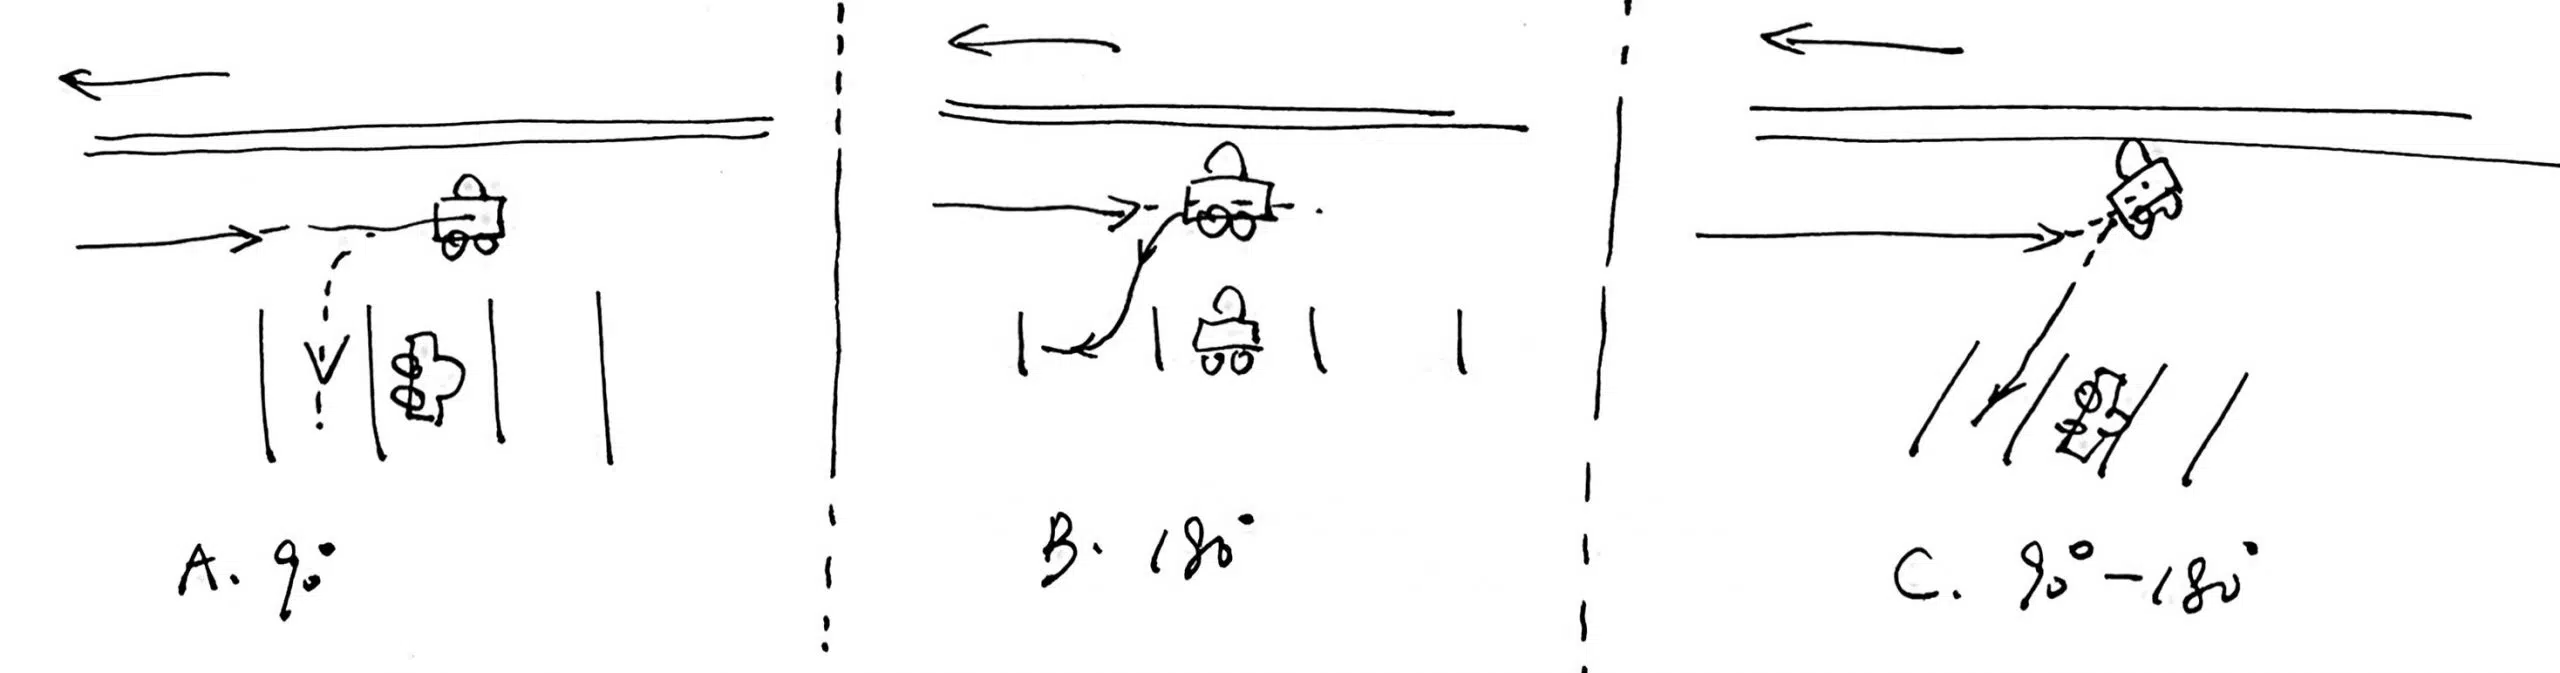 A. 90°
B. 180°
C. 90°-180°